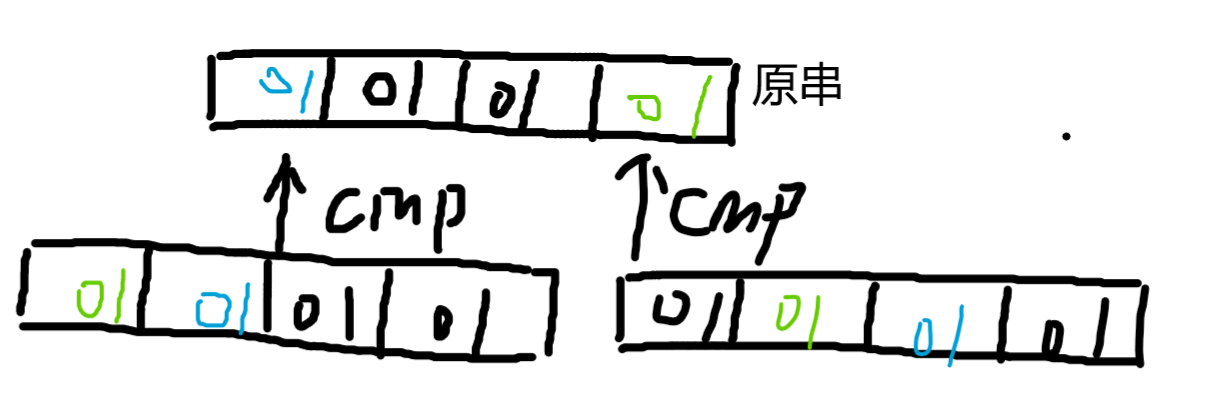 01 01 01 01 原串
cmp cmp
01 01 01 01
01 01 01 01